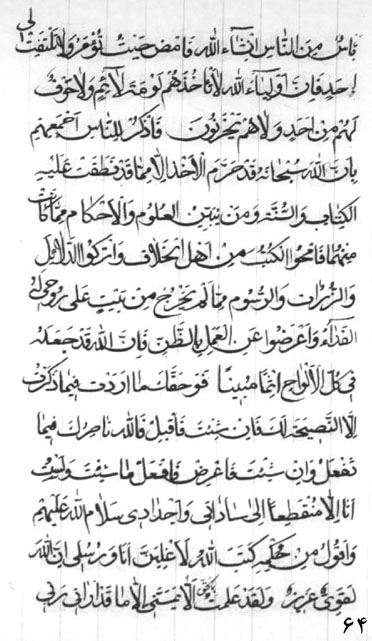 ناسٌ من الناس انشآء الله فامض حیثُ تؤمر ولا تلتفت الی
احد فانّ اولیآء الله لا تاخذهم لومة لآئم ولا خوفٌ
لهم من احد ولا هم یحزنون فاذکر للناس اجمعهم
بانّ الله سبحانه قد حرّم الأخذ الّا ممّا قد نطقت علیه
الکتاب والسّنّة ومن یبیّن العلوم والاحکام ممّا کانت
منهما فامحوا الکتب من اهل الخلاف واترکوا الدّلائل
والزبرات والرسوم ممّا لم یخرج من بیتٍ علی روحی له
الفدآء واعرضوا عن العمل بالظّنّ فانّ الله قد جعله
فی کلّ الالواح اثماً مبیناً فوحقّک ما اردت فیما ذکرت
الّا النّصیحة لک فان شئت فاقبل فالله ناصرک فیما
تفعل وان شئت فاعرض فافعل ما شئت ولستُ
انا الّا منقطعاً الی ساداتی واجدادی سلام الله علیهم
واقول من حکمه کتب الله لاغلبنّ انا ورسلی انّ الله
لقویٌّ عزیز ولقد علمت الا یمسّنی الّا ما قدّر لی ربّی
۶۴